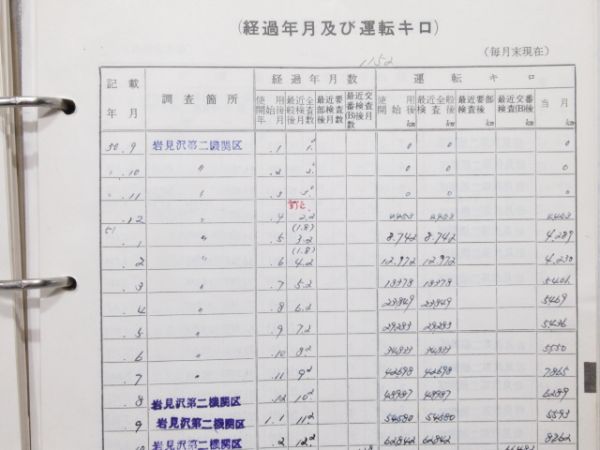 (経過年月及び運転キロ)
(毎月末現在)
1152
記載年月 調査箇所 経過年月数 運転キロ
使用開始後年月 最近全般検査後月数 最近要部検査後月数 最近交番検査(B)後月数 使用開始後km 最近全般検査後km 最近要部検査後km 最近交番検査(B)後km 当月km
50.9 岩見沢第二機関区 .1 0 0 0
.10 〃 .2 0 0 0
.11 〃 .3 0 0 0
.12 〃 .4 2.2
51.1 〃 .5 (1.8) 3.2 8.742 8.742 4.289
.2 〃 .6 (1.8) 4.2 12.972 12.972 4.230
.3 〃 .7 5.2
.4 〃 .8 6.2 23849 23849 5469
.5 〃 .9 7.2 29283 29283
.6 〃 .10 8.2 34833 34833 5550
.7 〃 .11 9.2 42698 42698 7865
.8 岩見沢第二機関区 .12 10.2 48987 48987 6289
.9 岩見沢第二機関区 1.1 11.2 54580 54580 5593
.10 岩見沢第二機関区 .2 12.2 62842 62842 8262